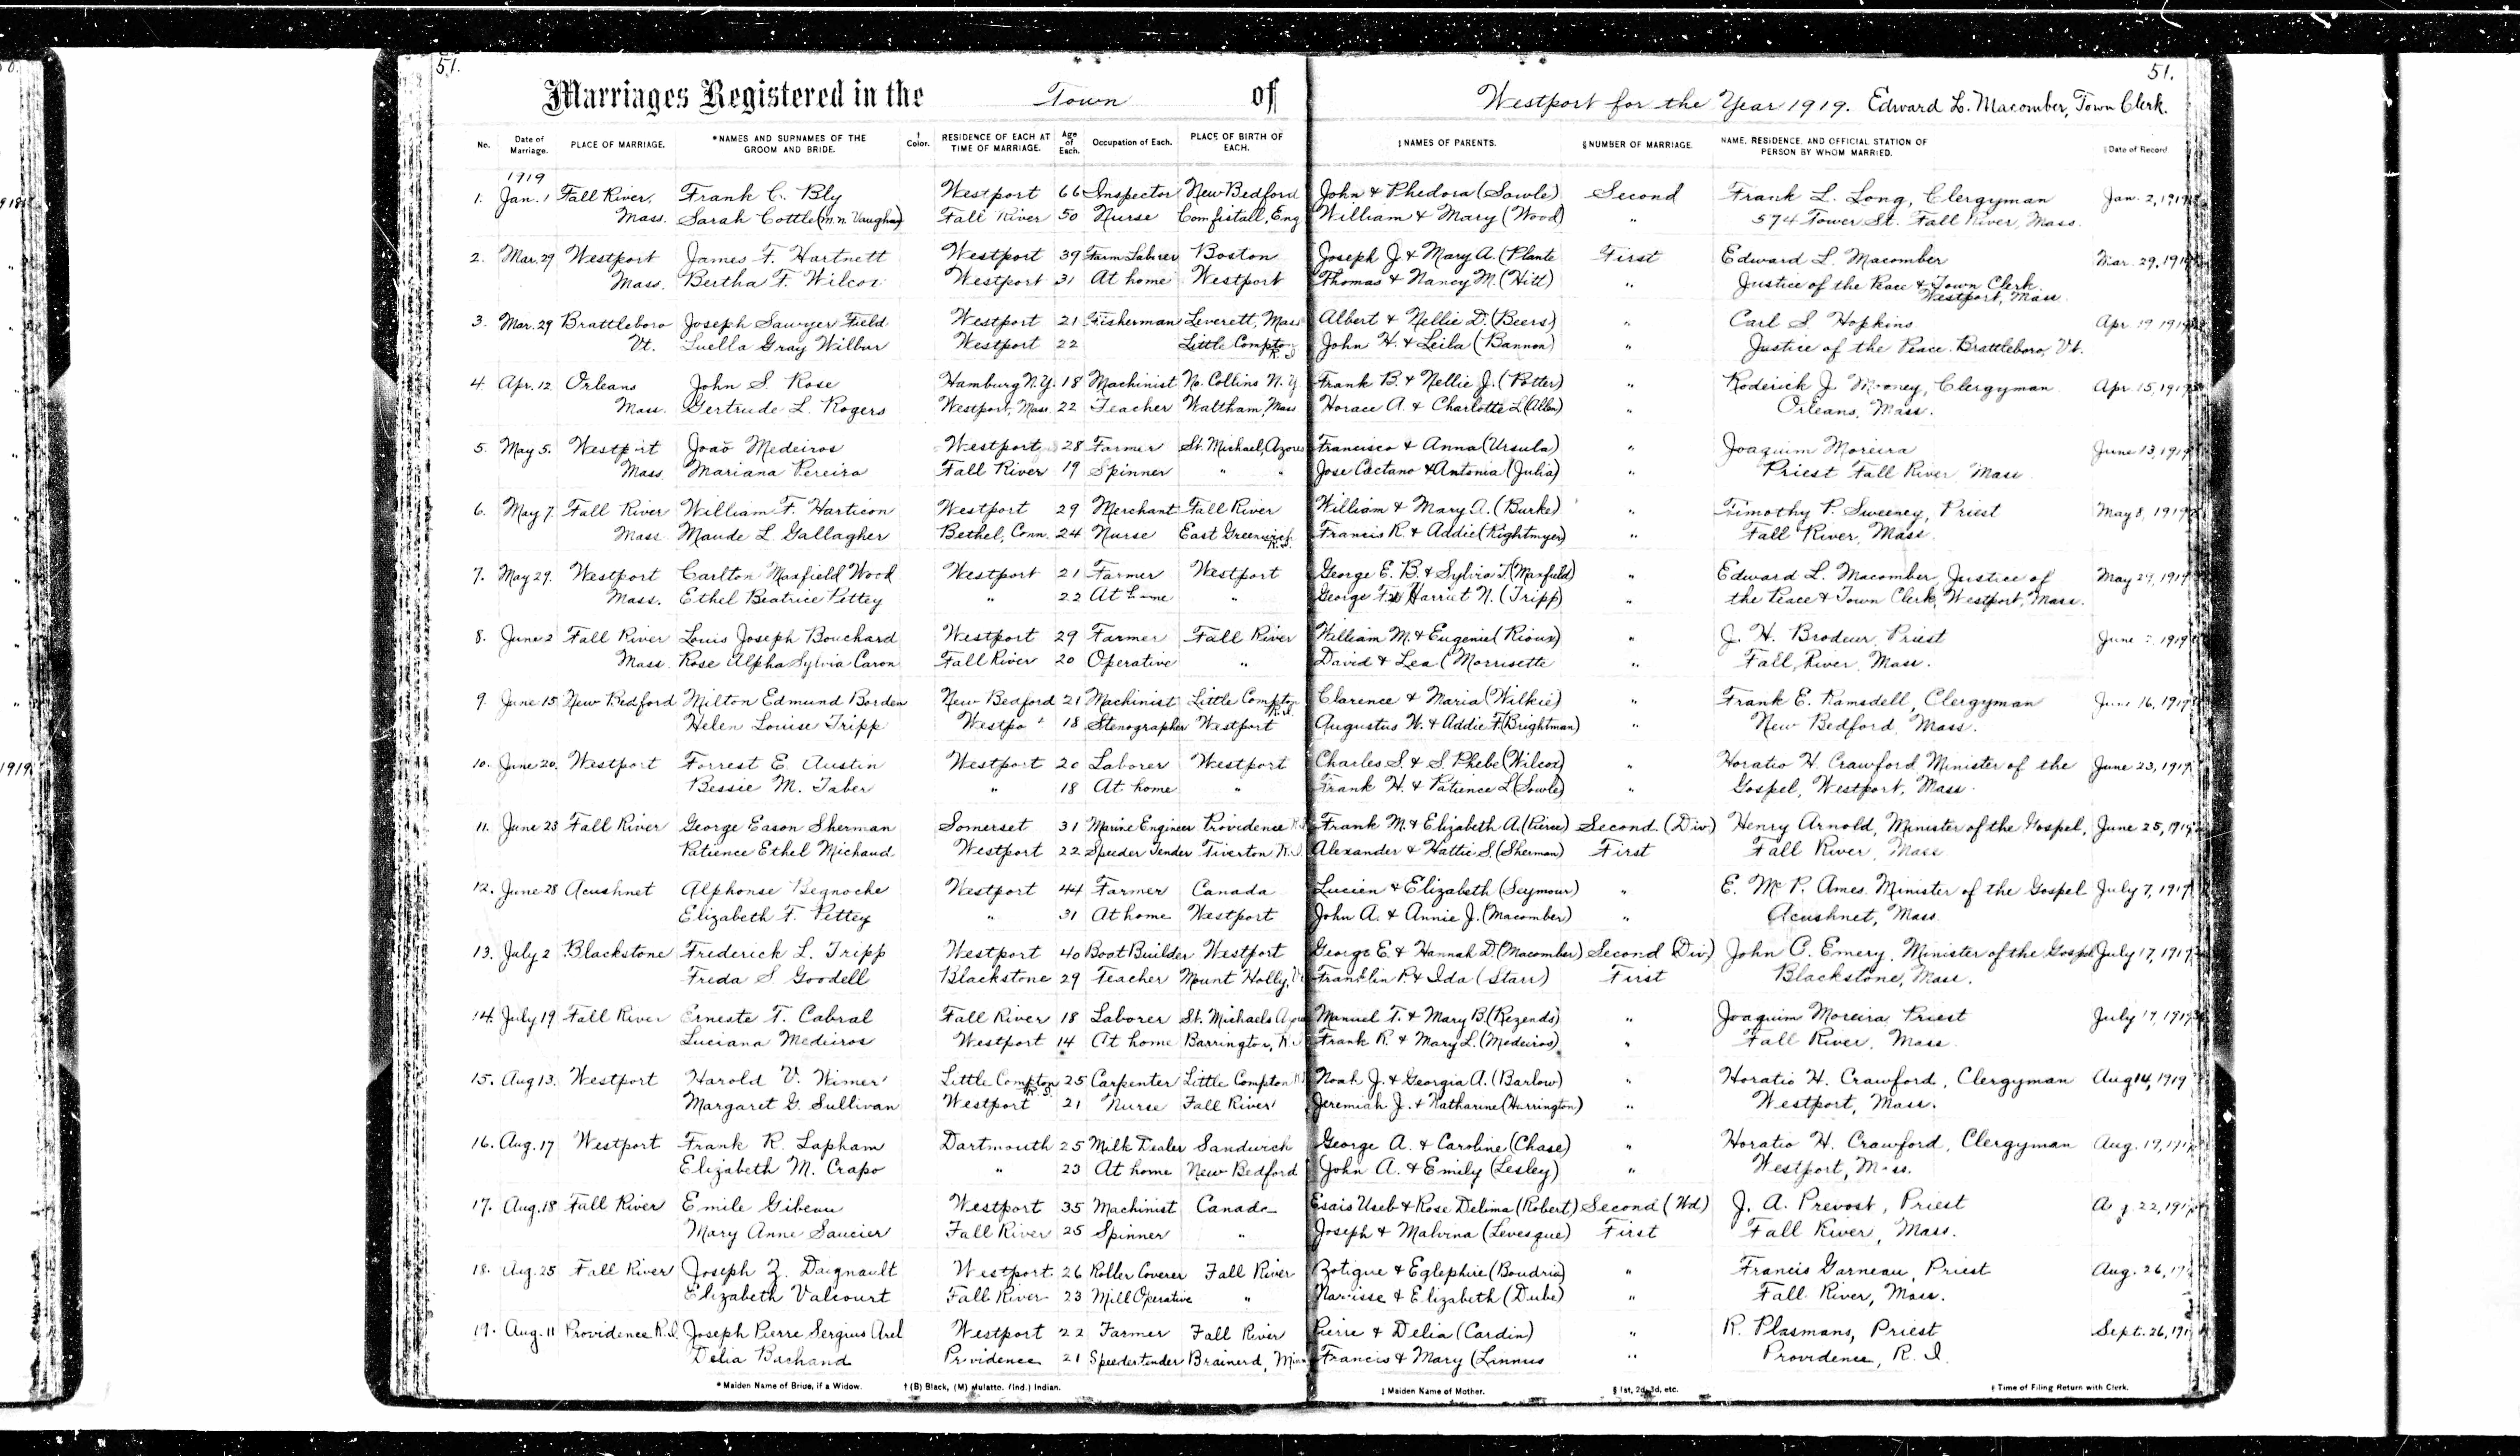 51.
51.
Marriages Registered in the Town of Westport for the Year 1919. Edward L. Macomber, Town Clerk.
No. Date of Marriage. PLACE OF MARRIAGE. *NAMES AND SURNAMES OF THE GROOM AND BRIDE. † Color. RESIDENCE OF EACH AT TIME OF MARRIAGE. Age of Each. Occupation of Each. PLACE OF BIRTH OF EACH. ‡NAMES OF PARENTS. §NUMBER OF MARRIAGE. NAME, RESIDENCE, AND OFFICIAL STATION OF PERSON BY WHOM MARRIED. Date of Record
1919
1. Jan. 1 Fall River, Frank C. Bly Westport 66 Inspector New Bedford John & Phedora (Sowle) Second Frank L. Long, Clergyman Jan. 2, 1919
Mass. Sarah Cottle (m.n. Vaughan) Fall River 50 Nurse Comfistall, Eng William & Mary (Wood) " 574 Tower St. Fall River, Mass.
2. Mar. 29 Westport James F. Hartnett Westport 39 Farm Laborer Boston Joseph J & Mary A. (Plante First Edward L. Macomber Mar. 29, 1919
Mass. Bertha F. Wilcox Westport 31 At home Westport Thomas & Nancy M. (Hitt) " Justice of the Peace & Town Clerk.
Westport, Mass
3. Mar. 29 Brattleboro Joseph Sawyer Field Westport 21 Fisherman Leverett, Mass Albert & Nellie D. (Beers) " Carl S. Hopkins Apr 19 1919
Vt. Luella Gray Wilbur Westport 22 Little Compton R.I John H. & Leila (Bannon) " Justice of the Peace. Brattleboro, Vt.
4. Apr. 12 Orleans John S. Rose Hamburg N.Y. 18 Machinist No. Collins N.Y Frank B. & Nellie J. (Potter) " Roderick J. Mooney, Clergyman Apr 15, 1919
Mass. Gertrude L. Rogers Westport, Mass. 22 Teacher Waltham, Mass Horace A. & Charlotte L (Allen) " Orleans, Mass.
5. May 5. Westport João Medeiros Westport 28 Farmer St. Michael, Azores Francisco & Anna (Ursula) " Joaquim Moreira June 13, 1919
Mass Mariana Pereira Fall River 19 Spinner " " Jose Caetano & Antonia (Julia) " Priest Fall River Mass
6. May 7. Fall River William F. Harticon Westport 29 Merchant Fall River William & Mary A. (Burke) " Timothy P. Sweeney, Priest May 8, 1919
Mass. Maude L. Gallagher Bethel, Conn. 24 Nurse East Greenwich R.I. Francis R. & Addie (Rightmyer) " Fall River, Mass.
7. May 29. Westport Carlton Maxfield Wood Westport 21 Farmer Westport George E. B. & Sylvia T. (Maxfield) " Edward L. Macomber, Justice of May 29, 1919
Mass. Ethel Beatrice Pettey " 22 At home " George F. & Harriet N. (Tripp) " the Peace & Town Clerk, Westport, Mass.
8. June 2 Fall River Louis Joseph Bouchard Westport 29 Farmer Fall River William M. & Eugenie (Rioux) " J. H. Brodeur, Priest June 1919
Mass. Rose Alpha Sylvia Caron Fall River 20 Operative " David & Lea (Morrisette " Fall River, Mass.
9. June 15 New Bedford Milton Edmund Borden New Bedford 21 Machinist Little Compton R.I. Clarence & Maria (Wilkie) " Frank E. Ramsdell, Clergyman June 16, 1919
Helen Louise Tripp Westport 18 Stenographer Westport Augustus W. & Addie F. (Brightman) " New Bedford, Mass.
10. June 20. Westport Forrest E. Austin Westport 20 Laborer Westport Charles S. & S. Phebe (Wilcox) " Horatio H. Crawford Minister of the June 23, 1919
Bessie M. Taber " 18 At home " Frank H. & Patience L (Sowle) " Gospel, Westport, Mass.
11. June 23 Fall River George Eason Sherman Somerset 31 Marine Engineer Providence R.I Frank M. & Elizabeth A. (Pierce) Second. (Div.) Henry Arnold, Minister of the Gospel, June 25, 1919
Patience Ethel Michaud Westport 22 Speeder Tender Tiverton R.I. Alexander & Hattie S. (Sherman) First Fall River, Mass
12. June 28 Acushnet Alphonse Begnoche Westport 44 Farmer Canada Lucien & Elizabeth (Seymour) " E. Mc P. Ames. Minister of the Gospel July 7, 1919
Elizabeth F. Pettey " 31 At home Westport John A. & Annie J. (Macomber) " Acushnet, Mass.
13. July 2 Blackstone Frederick L. Tripp Westport 40 Boat Builder Westport George E. & Hannah D. (Macomber) Second (Div.) John C. Emery, Minister of the Gospel July 17, 1919
Freda S Goodell Blackstone 29 Teacher Mount Holly, Franklin P. & Ida (Starr) First Blackstone, Mass.
14. July 19 Fall River Erneste T. Cabral Fall River 18 Laborer St. Michaels Azores Manuel T. & Mary B. (Rezends) " Joaquim Moreira, Priest July 19, 1919
Luciana Medeiros Westport 14 At home Barrington, R.I Frank R. & Mary L. (Medeiros) " Fall River, Mass.
15. Aug 13. Westport Harold V. Wimer Little Compton R.I. 25 Carpenter Little Compton Noah J. & Georgia A. (Barlow) " Horatio H. Crawford, Clergyman Aug 14, 1919
Margaret G. Sullivan Westport 21 Nurse Fall River Jeremiah J. & Katharine (Harrington) " Westport, Mass.
16. Aug. 17 Westport Frank R. Lapham Dartmouth 25 Milk Dealer Sandwich George A. & Caroline (Chase) " Horatio H. Crawford, Clergyman Aug. 19, 1919
Elizabeth M. Crapo " 23 At home New Bedford John A. & Emily (Lesley) " Westport, Mass.
17. Aug. 18 Fall River Emile Gibeau Westport 35 Machinist Canada Esais Useb & Rose Delima (Robert) Second (Wd) J. A. Prevost, Priest Aug 22, 1919
Mary Anne Saucier Fall River 25 Spinner " Joseph & Malvina (Levesque) First Fall River, Mass.
18. Aug. 25 Fall River Joseph Z. Daignault Westport 26 Roller Coverer Fall River Zotique & Eglephire (Boudria) " Francis Garneau, Priest Aug. 26,
Elizabeth Valcourt Fall River 23 Mill Operative " Narcisse & Elizabeth (Dube) " Fall River, Mass.
19. Aug. 11 Providence R.I. Joseph Pierre Sergius Arel Westport 22 Farmer Fall River Pierre & Delia (Cardin) " R. Plasmans, Priest Sept. 26, 191
Delia Bachand Providence 21 Speeder tender Brainerd, Minn Francis & Mary (Linnus " Providence, R. I.
*Maiden Name of Bride, if a Widow. † (B) Black, (M) Mulatto. (Ind.) Indian. ‡ Maiden Name of Mother. § 1st, 2d, 3d, etc. Time of Filing Return with Clerk.